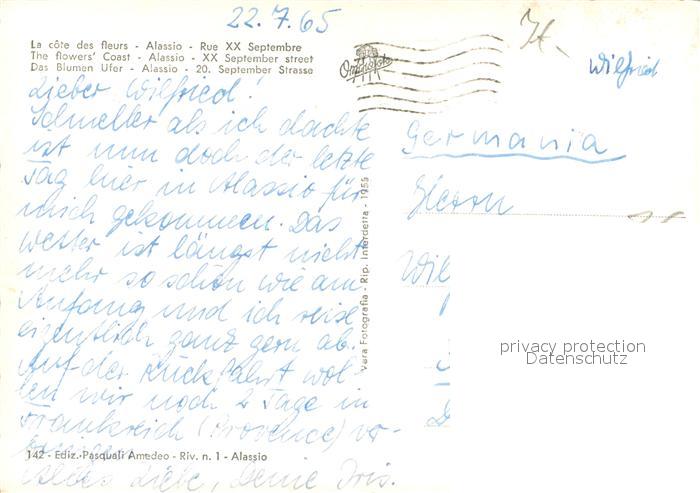 22.7.65
It.
La côte des fleurs - Alassio - Rue XX Septembre
The flowers' Coast - Alassio - XX September street
Das Blumen Ufer - Alassio - 20. September Strasse
Wilfried
Lieber Wilfried!
Schneller als ich dachte
ist nun doch der letzte
Tag hier in Alassio für
mich gekommen. Das
Wetter ist längst nicht
mehr so schön wie am
Anfang und ich reise
eigentlich ganz gern ab.
Auf der Rückfahrt wol-
len wir noch 2 Tage in
Frankreich (Provence) ver-
142 - Ediz. Pasquali Amedeo - Riv. n. 1 - Alassio
Alles Liebe, Deine Iris.
Vera Fotografia - Rip. Interdetta - 1955
Germania
Herrn
Wil
privacy protection
Datenschutz